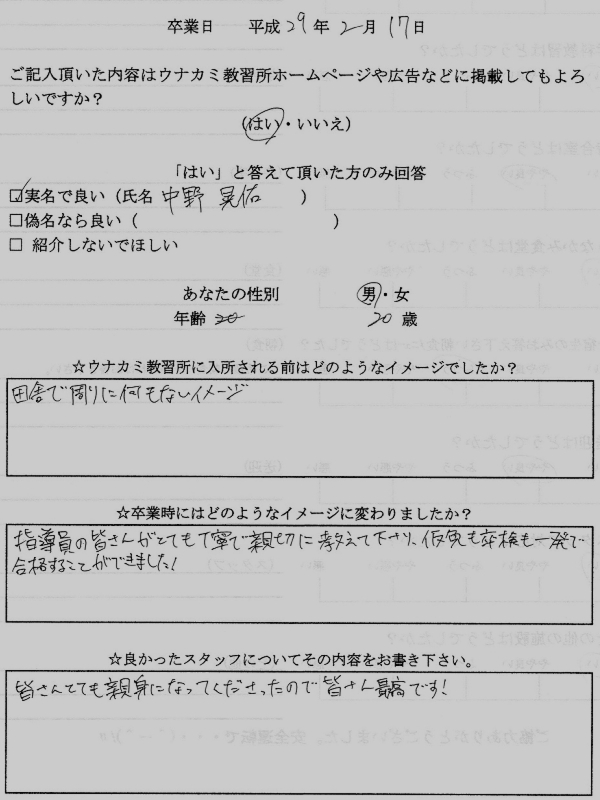 卒業日 平成29年2月17日
ご記入頂いた内容はウナカミ教習所ホームページや広告などに掲載してもよろ
しいですか?
(はい・いいえ)
「はい」と答えて頂いた方のみ回答
☑実名で良い(氏名 中野 晃佑 )
□偽名なら良い( )
□ 紹介しないでほしい
あなたの性別 男・女
年齢 20 20 歳
☆ウナカミ教習所に入所される前はどのようなイメージでしたか?
田舎で周りに何もないイメージ
☆卒業時にはどのようなイメージに変わりましたか?
指導員の皆さんがとても丁寧で親切に教えて下さり、仮免も卒検も一発で
合格することができました!
☆良かったスタッフについてその内容をお書き下さい。
皆さんとても親身になってくださったので皆さん最高です!